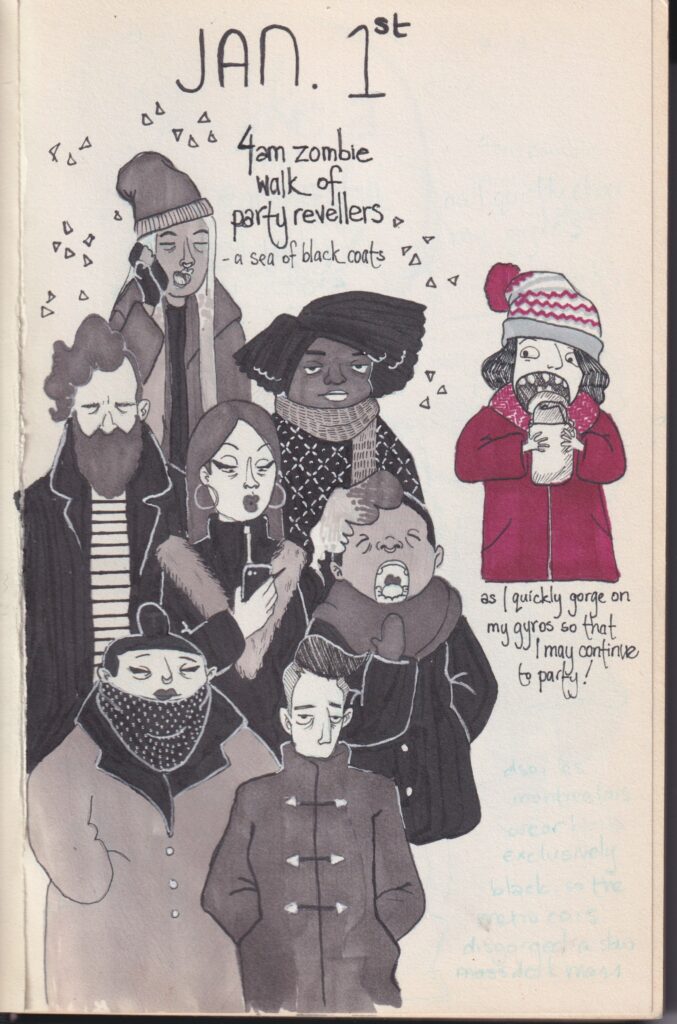 JAN. 1st
4am zombie
walk of
party revellers
- a sea of black coats
as I quickly gorge on
my gyros so that
I may continue
to party!
exclusively
black, so the